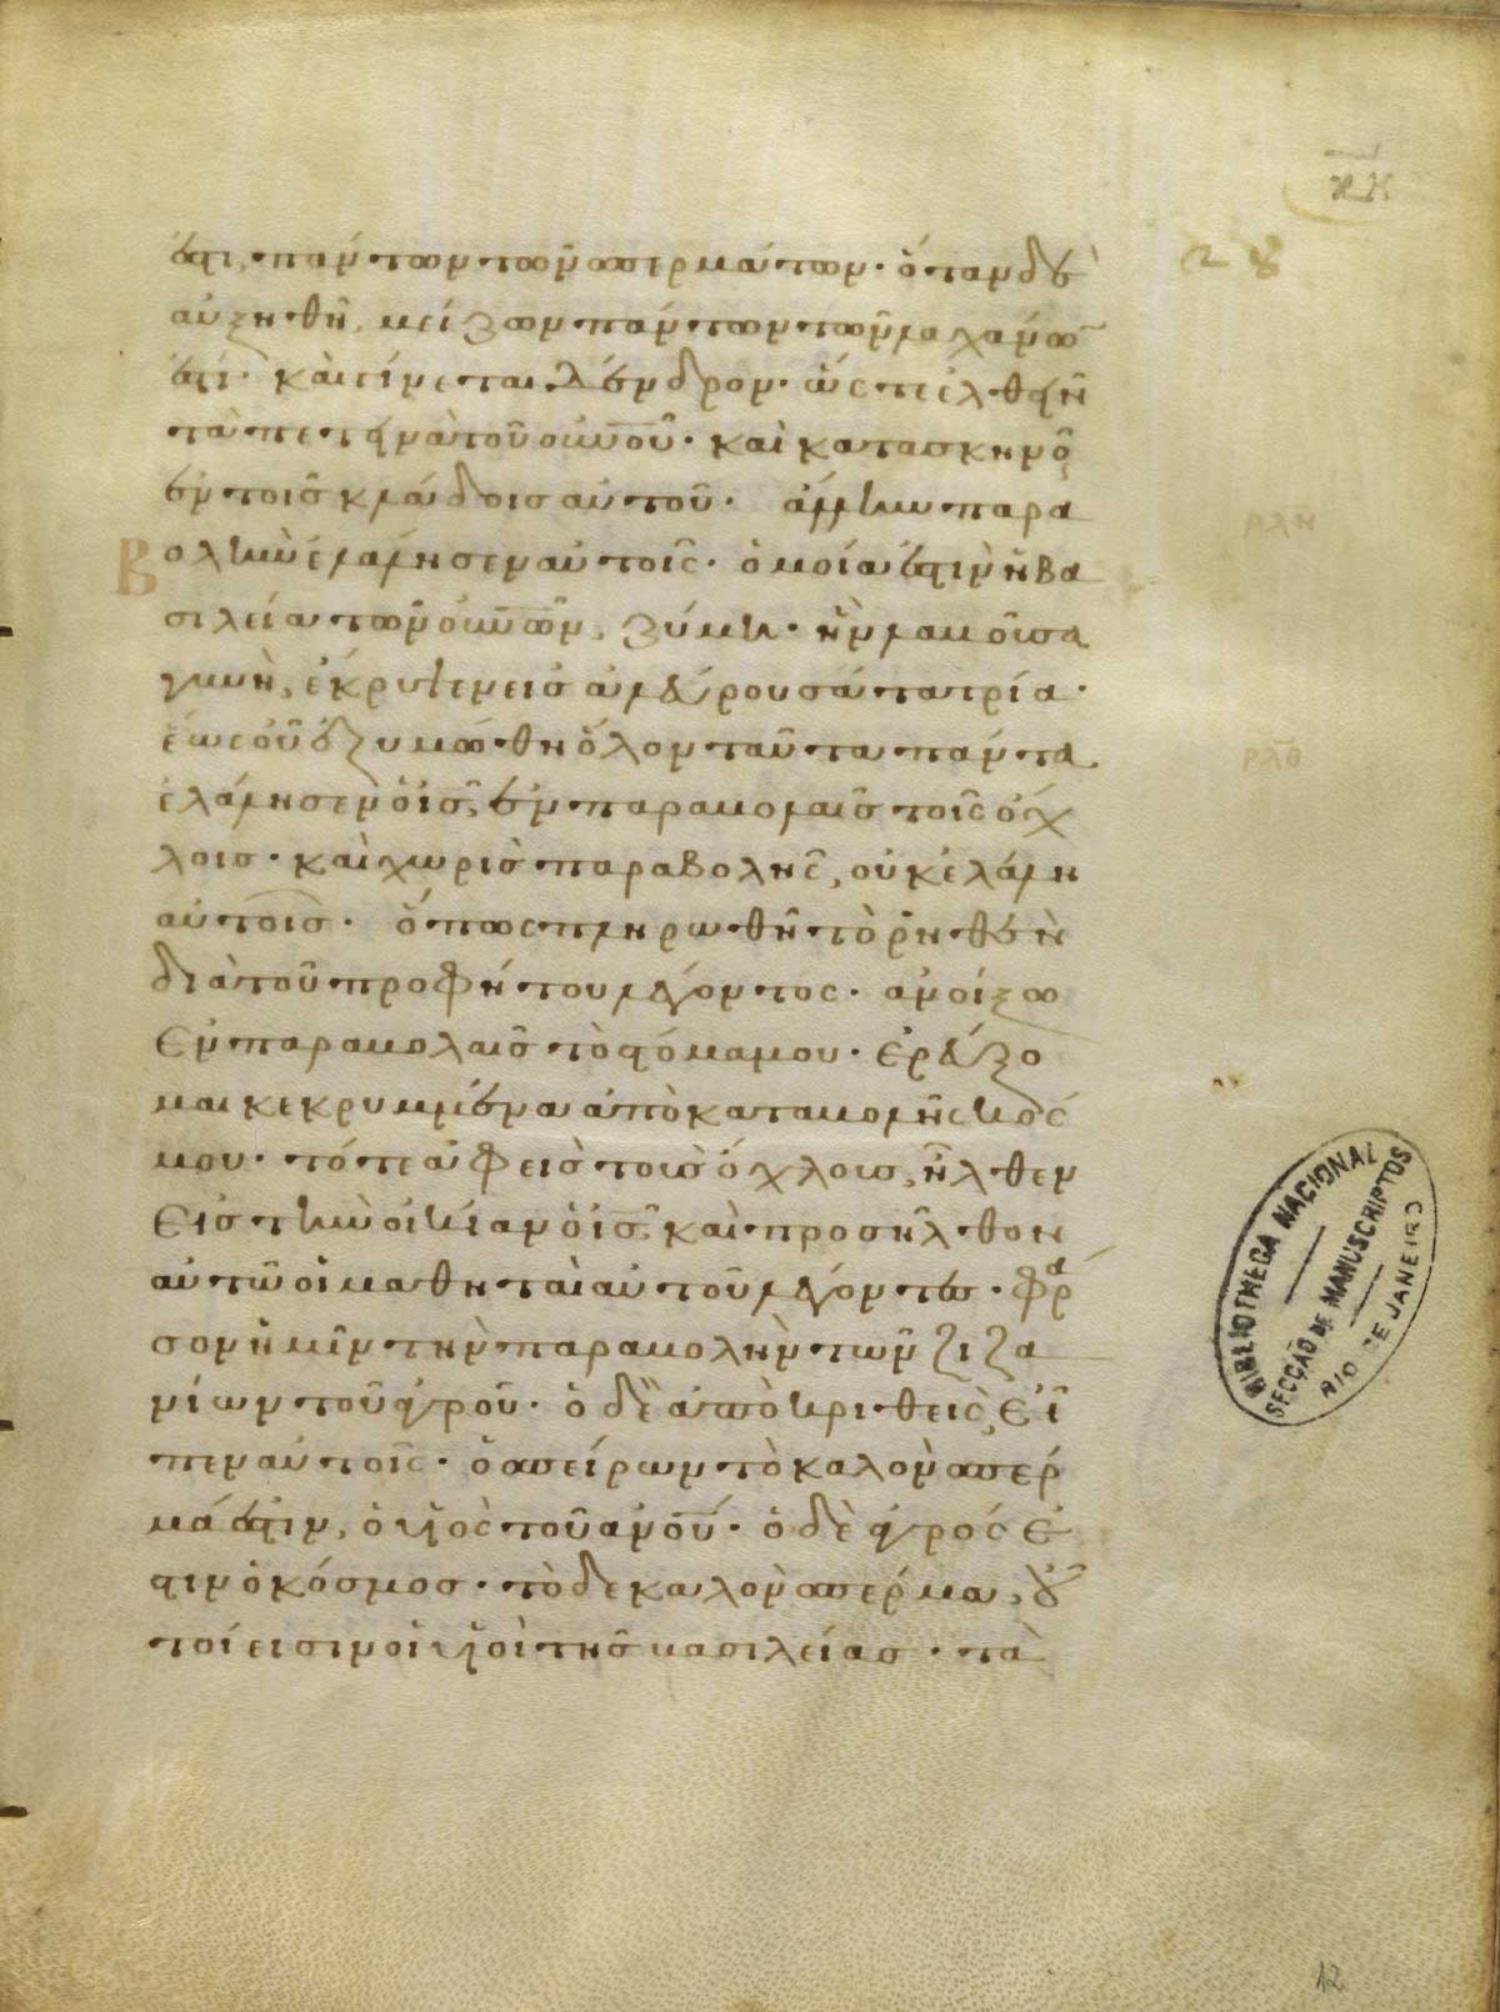 ἐστι, πάντων τῶν σπερμάτων· ὅταν δὲ
αὐξηθῆ, μείζων πάντων τῶν λαχάνω̅
ἐστί· καὶ γίνεται δένδρον· ὥς τε ἐλθεῖν
τὰ πετεινὰ τοῦ ου̅νου̅· καὶ κατασκηνοῖ
ἐν τοῖς κλάδοις αὐτοῦ· ἄλλην παρα
βολὴν ἐλάλησεν αὐτοῖς· ὁμοία ἐστὶν ἡ βα
σιλεία τῶν ου̅νω̅ν, ζύμη· ἣν λαβοῦσα
γυνὴ, ἐκρυψεν εἰς ἀλεύρου σάτα τρία·
ἕως οὗ ἐζυμώθη ὅλον ταῦτα πάντα
ἐλάλησεν ὁ ι̅ς̅, ἐν παραβολαῖς τοῖς ὄχ
λοις· καὶ χωρὶς παραβολῆς, οὐκ ἐλάλη
αὐτοῖς· ὅπως πληρωθῆ τὸ ῥηθὲν
διὰ τοῦ προφήτου λέγοντος· ἀνοίξω
ἐν παραβολαῖς τὸ στόμα μου· ἐρεύξο
μαι κεκρυμμένα ἀπὸ καταβολῆς κόσ
μου· τότε ἀφεὶς τοὺς ὄχλους, ἦλθεν
εἰς τὴν οἰκίαν ὁ ι̅ς̅ καὶ προσῆλθον
αὐτῶ οἱ μαθηταὶ αὐτοῦ λέγοντες· φρά
σον ἡμῖν τὴν παραβολὴν τῶν ζιζα
νίων τοῦ ἀγροῦ· ὁ δὲ ἀποκριθεὶς, εἶ
πεν αὐτοῖς· ὁ σπείρων τὸ καλὸν σπέρ
μά ἐστιν, ὁ υἱὸς τοῦ α̅νου̅· ὁ δὲ ἀγρός ἐ
στιν ὁ κόσμος· τὸ δὲ καλὸν σπέρμα, οὗ
τοί εἰσιν οἱ υἱοὶ τῆς βασιλείας· τὰ
28
ρλη
ρλθ
BIBLIOTHECA NACIONAL
SECÇÃO DE MANUSCRIPTOS
RIO DE JANEIRO
12